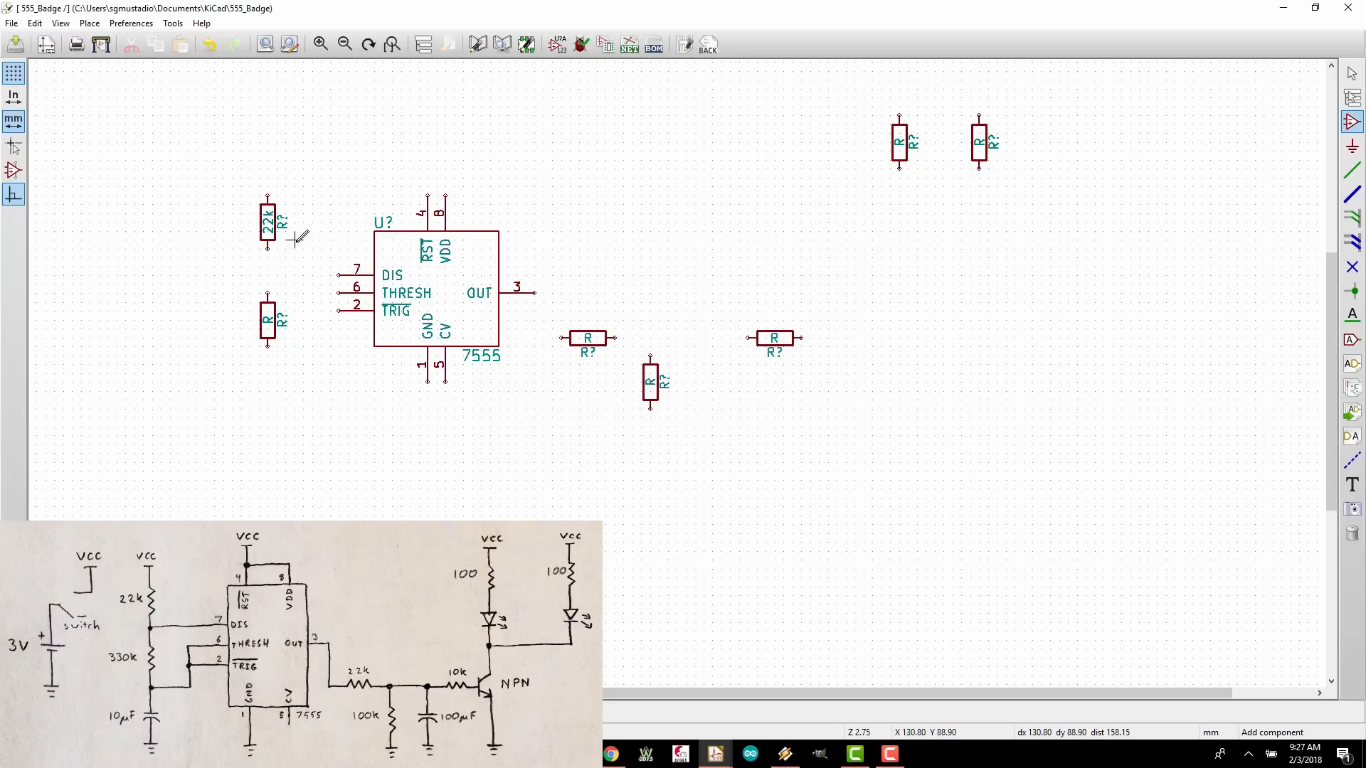 [ 555_Badge /] (C:\Users\sgmustadio\Documents\KiCad\555_Badge)
File Edit View Place Preferences Tools Help
U?A 123
NET
BOM
BACK
In
mm
A
A
A
DA
T
R
R?
R
R?
22k
R?
R
R?
U?
4
8
RST
VDD
7
DIS
6
THRESH
OUT
3
2
TRIG
GND
CV
7555
1
5
R
R?
R
R?
R
R?
VCC
VCC
VCC
VCC
VCC
22k
switch
3V
+
330k
10µF
4
8
RST
VDD
7
DIS
6
THRESH
OUT
3
2
TRIG
GND
CV
1
7555
22k
100k
100µF
10k
NPN
100
100
Z 2.75
X 130.80 Y 88.90
dx 130.80 dy 88.90 dist 158.15
mm
Add component
9:27 AM
2/3/2018